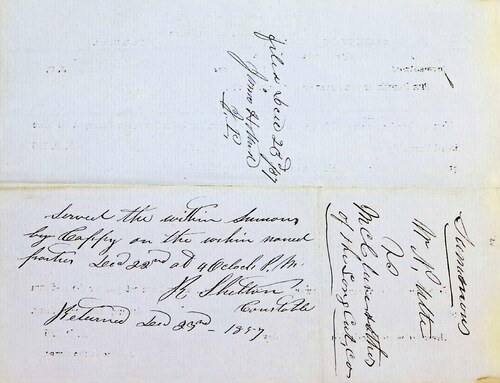 filed Decd 23rd /57
James H
J. P.
Served the within Sumons
by Coppy on the within named
parties Decd 22nd at 4 Oclock P. M.
K. Shelton
Constable
Returned Decd 23rd - 1857
Summons
Wm N.
Vs
McClure & others
of the Long Cut, Co